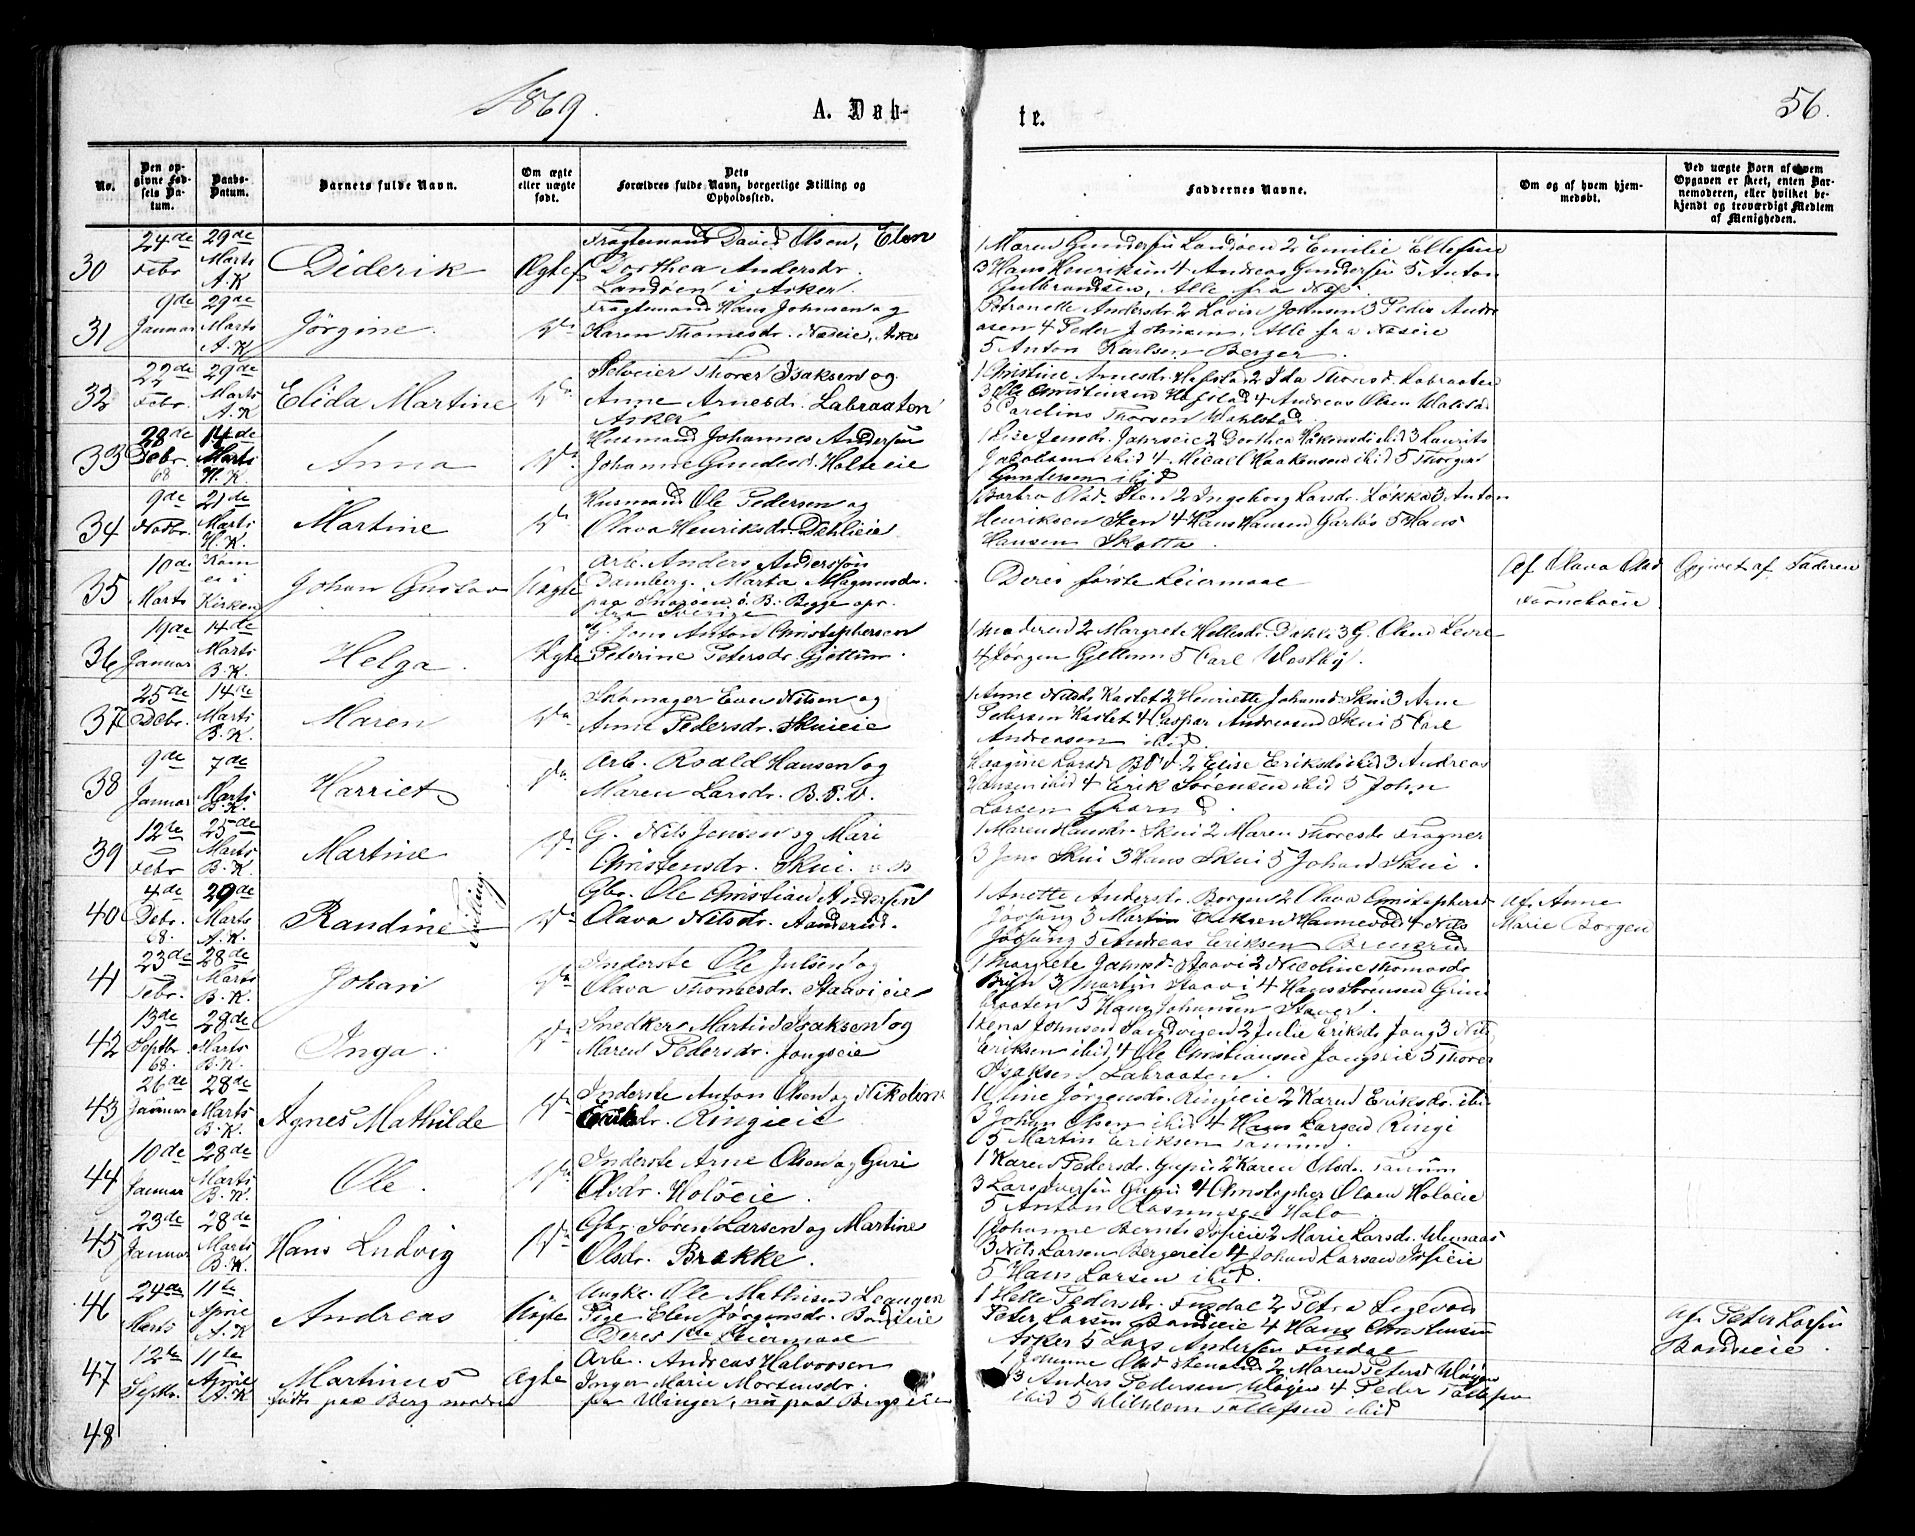 1869.
A. Døb-
te.
56.
No.
Den op-
givne Fød-
sels Da-
tum.
Daabs-
Datum.
Barnets fulde Navn.
Om ægte
eller uægte
født.
Dets
Forældres fulde Navn, borgerlige Stilling og
Opholdssted.
Faddernes Navne.
Om og af hvem hjem-
medøbt.
Ved uægte Børn af hvem
Opgaven er skeet, enten Bar-
nemoderen, eller hvilket be-
kjendt og troværdigt Medlem
af Menigheden.
30
24de
Febr
29de
Marts
A. K
Diderik
Ægtef
Fragtemand David Olsen, Elen
Dorthea Andersdr.
Landøen i Asker
1 Maren Gundersen Landøen 2 Emilie Ellefsen
3 Hans Henriksen 4 Andreas Gundersen 5 Anton
Gulbrandsen, Alle fra Næs
31
9de
Januar
29de
Marts
A. K
Jørgine
Do
Fragtemand Hans Johnsen og
Karen Thomesdr. Næseie, Asker
Petronelle Andersdr 2 Lovise Johnsen 3 Peder Andre
asen 4 Peder Johnsen, Alle fra Næseie
5 Anton Karlsen Berger.
32
22de
Febr.
29de
Marts
A. K
Elida Martine
Do
Selveier Thorer Isaksen og
Anne Arnesdr. Labraaten
Asker
1 Christine Arnesdr. Hofstad 2 Ida Thorsd. Labraaten
3 Ole Christensen Hofstad 4 Andreas Olsen Walstad
5 Carelius Thorsen Wahlstad
33
28de
Febr.
68
14de
Marts
H. K.
Anna
Do
Huusmand Johannes Andersen
Johanne Gundesd. Holteeie
1 Lise Jensdr. Jahrseie 2 Dorthea Haakensd ibid 3 Laurits
Jacobsen ibid 4 Micael Haakensen ibid 5 Thorger
Gundersen ibid
34
9de
Novbr.
21de
Marts
H. K.
Martine
Do
Husmand Ole Pedersen og
Olava Henriksdr. Dehlieie
1 Barbra Olsd. Sten 2 Ingeborg Larsdr. Løkke 3 Anton
Henriksen Sten 4 Hans Hansen Garløs 5 Hans
Hansen Skotta.
35
10de
Marts
Kom
ei i
Kirken
Johan Gustav
Uægte
Arb. Anders Anderssøn
Damberg. Marta Magnusdr.
paa Snarøen ø. B. Begge opr.
fra Sverige
Deres første Leiermaal
Af Olava Olsd
Opgivet af Faderen
36
19de
Januar
14de
Marts
B. K.
Helga.
Ægte
G. Jens Anton Christophersen
Peterine Petersdr. Gjettum.
1 Moderen 2 Margrete Hellesdr. Dahl 3 G. Olsen Levre
4 Jørgen Gjettum 5 Carl Westby.
37
25de
Debr.
14de
Marts
B. K.
Maren
Do
Skomager Even Nilsen og
Anne Pedersdr. Skuieie
1 Anne Nilsdr Kastet 2 Henriette Johansd. Skui 3 Arne
Pedersen Kastet 4 Caspar Andreasen Skui 5 Carl
Andreasen ibid.
38
9de
Januar
7de
Marts
B. K.
Harriet
Do
Arb. Roald Hansen og
Maren Larsdr. B. V.
Haagine Larsdr 2 Elise Eriksd ibid 3 Andreas
Hansen ibid 4 Erik Sørensen ibid 5 John
Larsen
39
12te
Febr
25de
Marts
B. K.
Martine
Do
G. Nils Jensen og Mari
Christensdr. Skui.
1 Maren Hansdr. Skui 2 Maren Thoresdr Frogner
3 Jens Skui 3 Hans Skui 5 Johan Skui.
40
4de
Debr.
68.
29de
Marts
A. K.
Randine
Tvilling.
Do
Gbr. Ole Christian Andersen
Olava Nilsdr. Aanderud.
1 Anette Andersdr. Borgen 2 Olava Christophersd
Jøssung 3 Martin Eriksen Hannevold 4 Nils
Jøssung 5 Andreas Eriksen Brengsrud
Af Anne
Marie Borgen
41
23de
Febr.
28de
Marts
B. K.
Johan
Do
Inderste Ole Julsen og
Olava Thomesdr. Staavieie
1 Margrete Jahnsd. Staavi 2 Nicoline Thomasdr
Bryn 3 Martin Staavi 4 Hans Sørensen Grini
braaten 5 Hans Johansen Staver.
42
13de
Septbr.
68.
28de
Marts
B. K.
Inga.
Do
Snedker Martin Isaksen og
Maren Pedersdr. Jongseie
1 Lena Johnsen Sandvigen 2 Julie Eriksdr Jong 3 Nils
Eriksen ibid, 4 Ole Christiansen Jongseie 5 Thorer
Isaksen Labraaten.
43
26de
Januar
28de
Marts
B. K.
Agnes Mathilde
Do
Inderste Anton Olsen og Nikoline
Eriksdr. Ringieie
1 Oline Jørgensdr. Ringieie 2 Karen Eriksdr. ibid
3 Johan Olsen ibid 4 Hans Larsen Ringi
5 Martin Eriksen Tanum.
44
10de
Januar
28de
Marts
B. K.
Ole.
Do
Inderste Arne Olsen og Guri
Olsdr. Holoeie.
1 Karen Pedersdr. Gupu 2 Karen Olsdr. Tanum
3 Lars Iversen Gupu 4 Christopher Olsen Holoeie
5 Anton Rasmussen Holo.
45
23de
Januar
28de
Marts
B. K.
Hans Ludvig
Do
Gbr. Søren Larsen og Martine
Olsdr. Brække.
1 Johanne Berntsd. 2 Marie Larsdr.
3 Nils Larsen Bergereie 4 Johan Larsen
5 Hans Larsen ibid.
46
24de
Marts
11te
April
A. K
Andreas
Uægte
Ungk. Ole Mathisen Leangen
Pige Elen Jørgensdr. Bondieie
Deres 1ste Leiermaal
1 Helle Pedersdr. Fusdal 2 Petra Ligevold
Peter Larsen Bondieie 4 Hans Christensen
Asker 5 Lars Andersen Fusdal
af Peter Larsen
Bondieie.
47
12te
Septbr.
11te
April
A. K
Martinus
født paa Berg nordre
Ægte
Arb. Andreas Halvorsen
Inger Marie Mortensdr.
fra Ulinger, nu paa Bergseie
1 Johanne Olsd Stensrud 2 Maren Petersd Wøyen
3 Anders Pedersen Wøyen 4 Peder Tollefsen
ibid 5 Wilhelm Tollefsen ibid
48